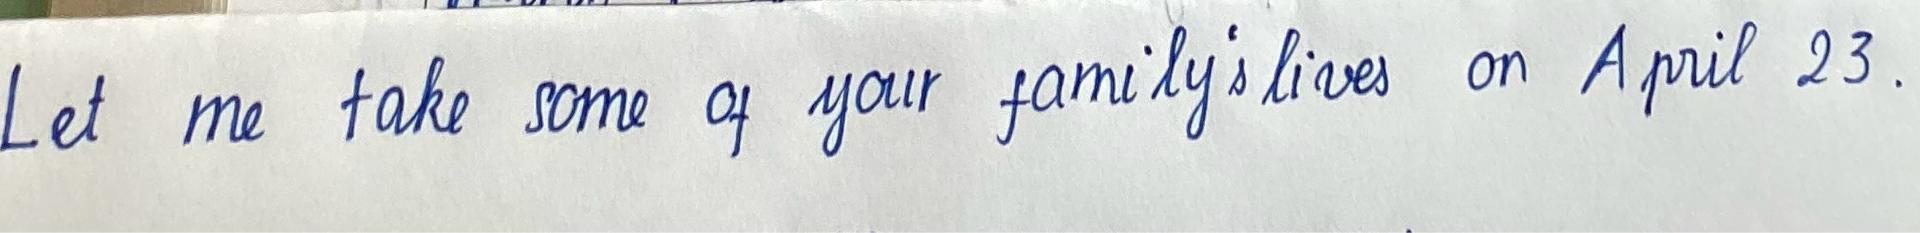 Let me take some of your family's lives on April 23.